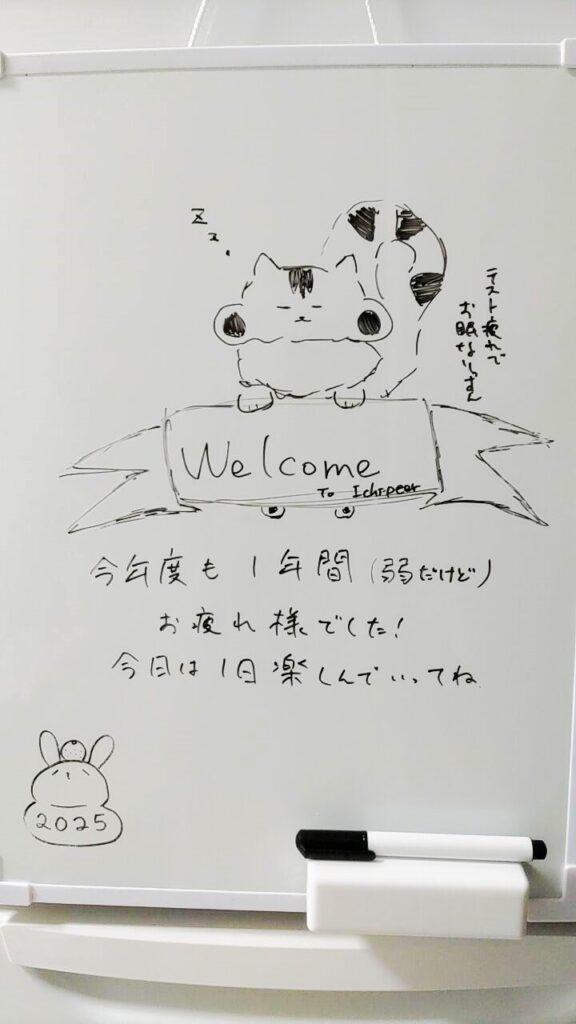 zz
テスト疲れで
お眠ならすん
Welcome
To Ichi-peer
今年度も1年間(弱だけど)
お疲れ様でした!
今日は1日楽しんでいってね
2025